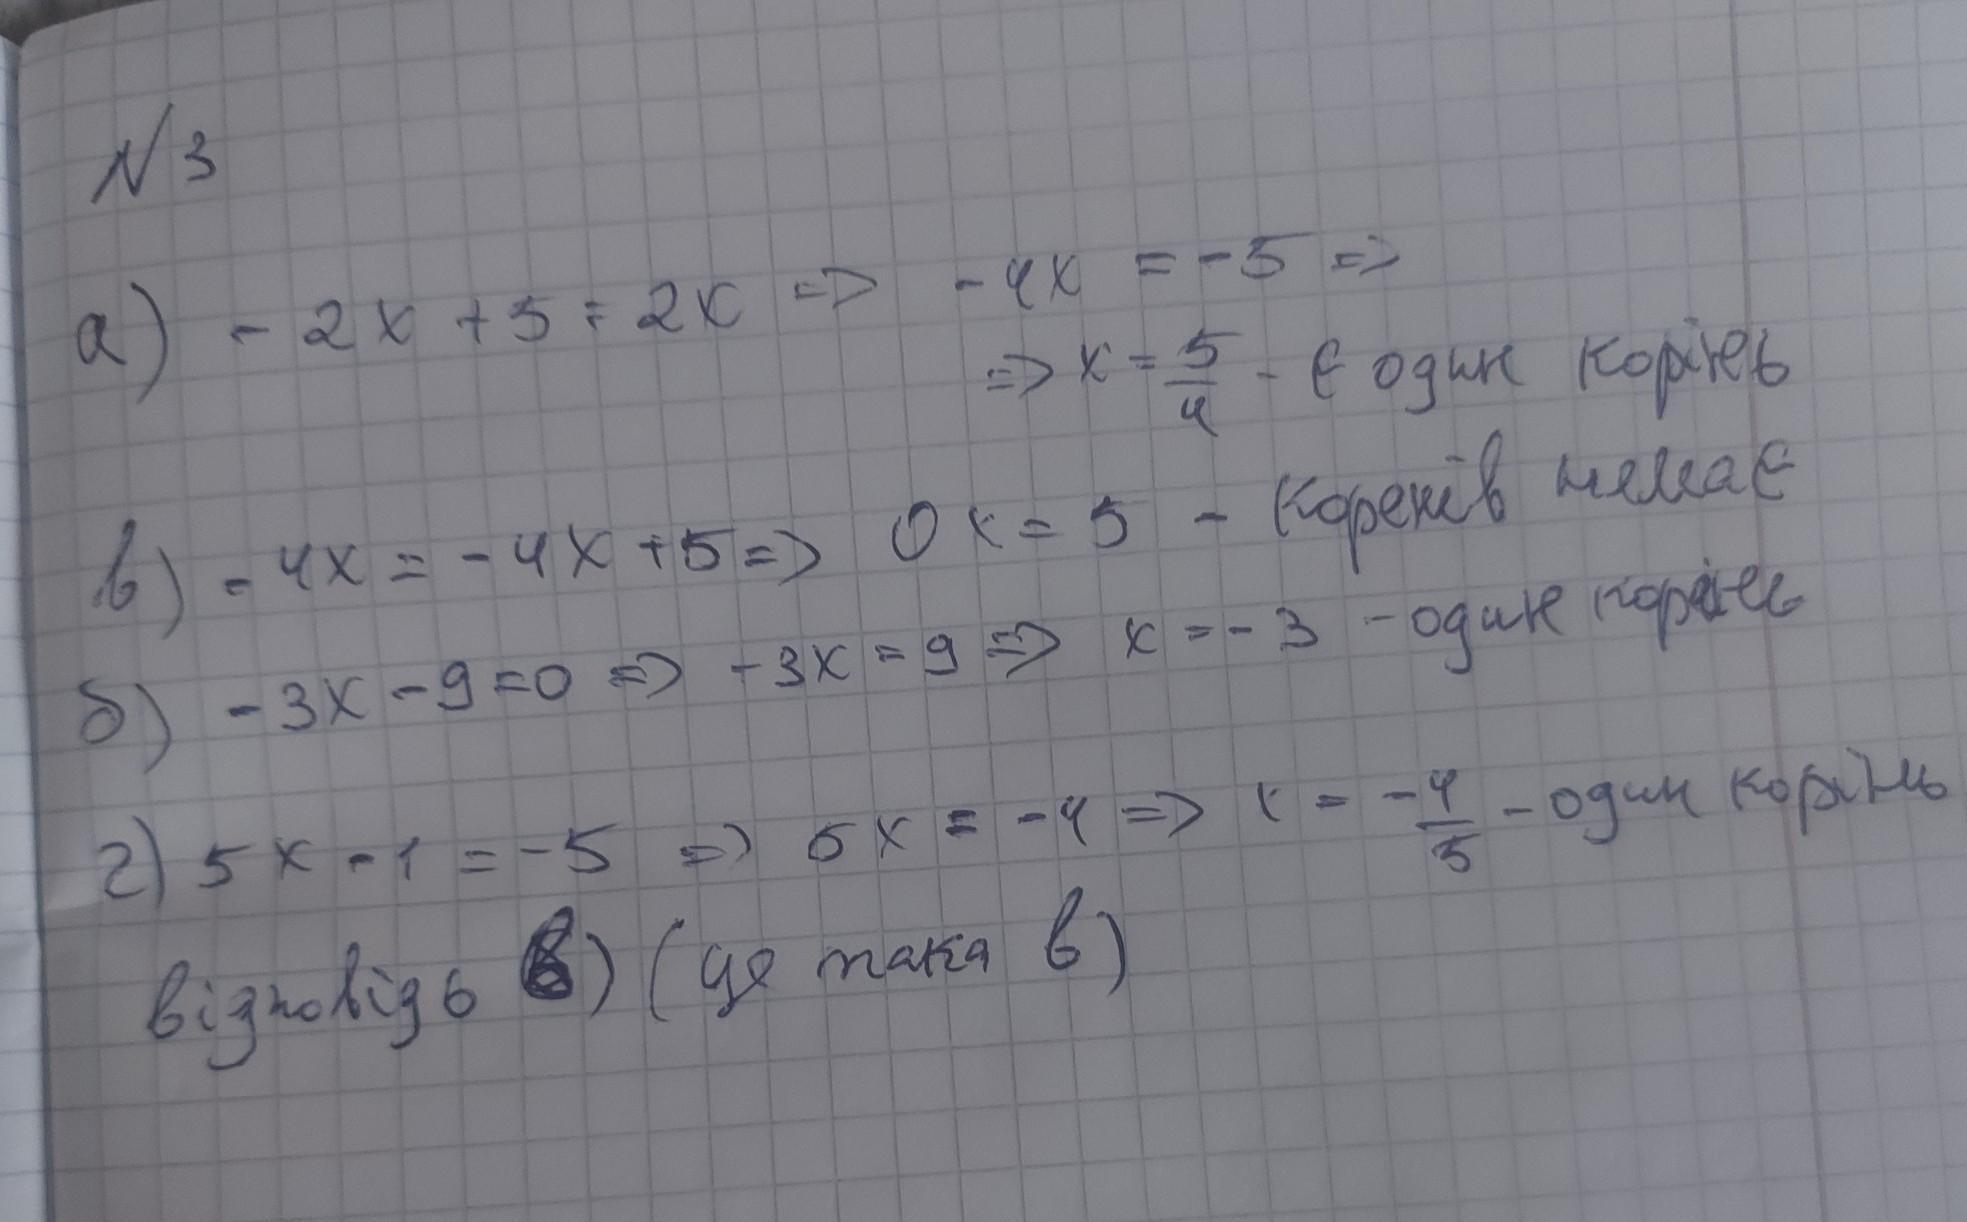 №3
а) - 2x + 5 = 2x => -4x = -5 =>
=> x = 5/4 - є один корінь
в) - 4x = -4x + 5 => 0x = 5 - коренів немає
б) - 3x - 9 = 0 => -3x = 9 => x = -3 - один корінь
г) 5x - 1 = -5 => 5x = -4 => x = -4/5 - один корінь
відповідь в) (це така в)